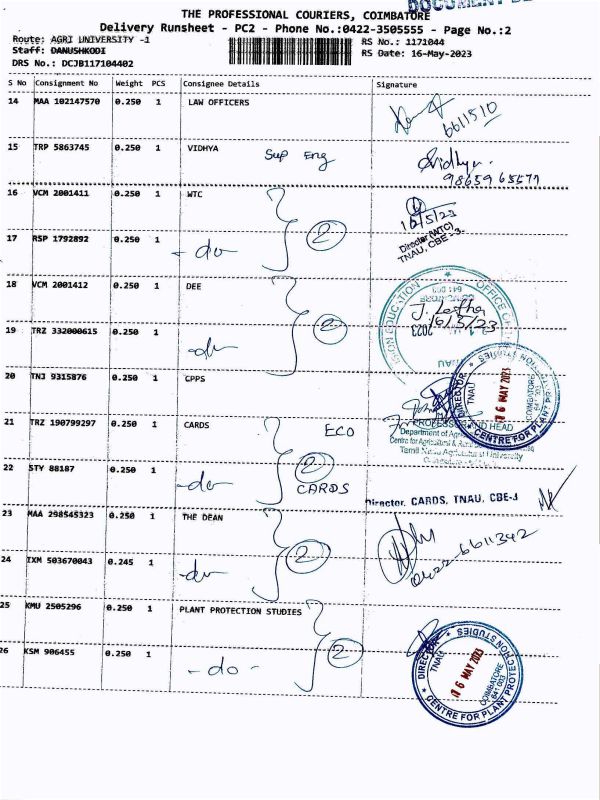 THE PROFESSIONAL COURIERS, COIMBATORE
Delivery Runsheet - PC2 - Phone No.:0422-3505555 - Page No.:2
Route: AGRI UNIVERSITY -1
RS No.: 1171044
Staff: DANUSHKODI
RS Date: 16-May-2023
DRS No.: DCJB117104402
S No Consignment No Weight PCS Consignee Details Signature
14 MAA 102147570 0.250 1 LAW OFFICERS
6611510
15 TRP 5863745 0.250 1 VIDHYA Sup Eng
Sridhya
98659 65577
16 VCM 2001411 0.250 1 WTC
16/5/23
Director (WTC)
TNAU, CBE -3.
17 RSP 1792892 0.250 1 -do- 2
18 VCM 2001412 0.250 1 DEE
J. Latha
16/5/23
19 TRZ 332000615 0.250 1 -do- 2
20 TNJ 9315876 0.250 1 CPPS
DIRECTOR TNAU
16 MAY 2023
COIMBATORE
CENTRE FOR PLANT PROTECTION STUDIES
PROFESSOR AND HEAD
Tamil Nadu Agricultural University
21 TRZ 190799297 0.250 1 CARDS ECO
22 STY 88187 0.250 1 -do- 2 CARDS
Director, CARDS, TNAU, CBE-3
23 MAA 298545323 0.250 1 THE DEAN
0422-6611342
24 IXM 503670043 0.245 1 -do- 2
25 KMU 2505296 0.250 1 PLANT PROTECTION STUDIES
26 KSM 906455 0.250 1 -do- 2
DIRECTOR TNAU
16 MAY 2023
COIMBATORE
641 003
CENTRE FOR PLANT PROTECTION STUDIES